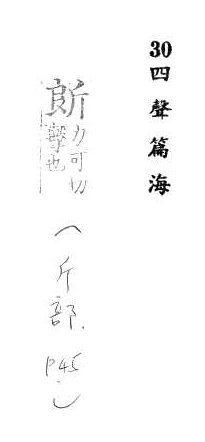 30四聲篇海
力可切
擊也
（斤部. P45）